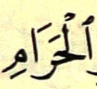 ٱلْحَرَامِ